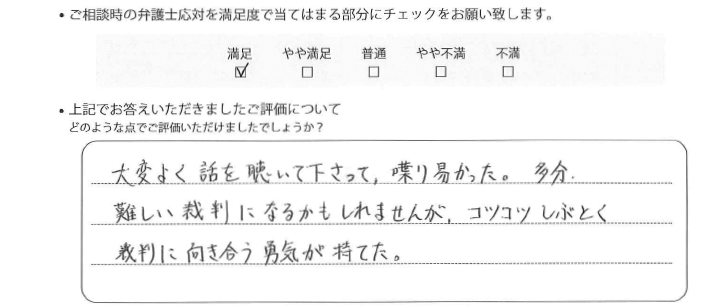 • ご相談時の弁護士応対を満足度で当てはまる部分にチェックをお願い致します。
満足 やや満足 普通 やや不満 不満
☑ ☐ ☐ ☐ ☐
• 上記でお答えいただきましたご評価について
どのような点でご評価いただけましたでしょうか？
大変よく話を聴いて下さって、喋り易かった。多分、
難しい裁判になるかもしれませんが、コツコツしぶとく
裁判に向き合う勇気が持てた。